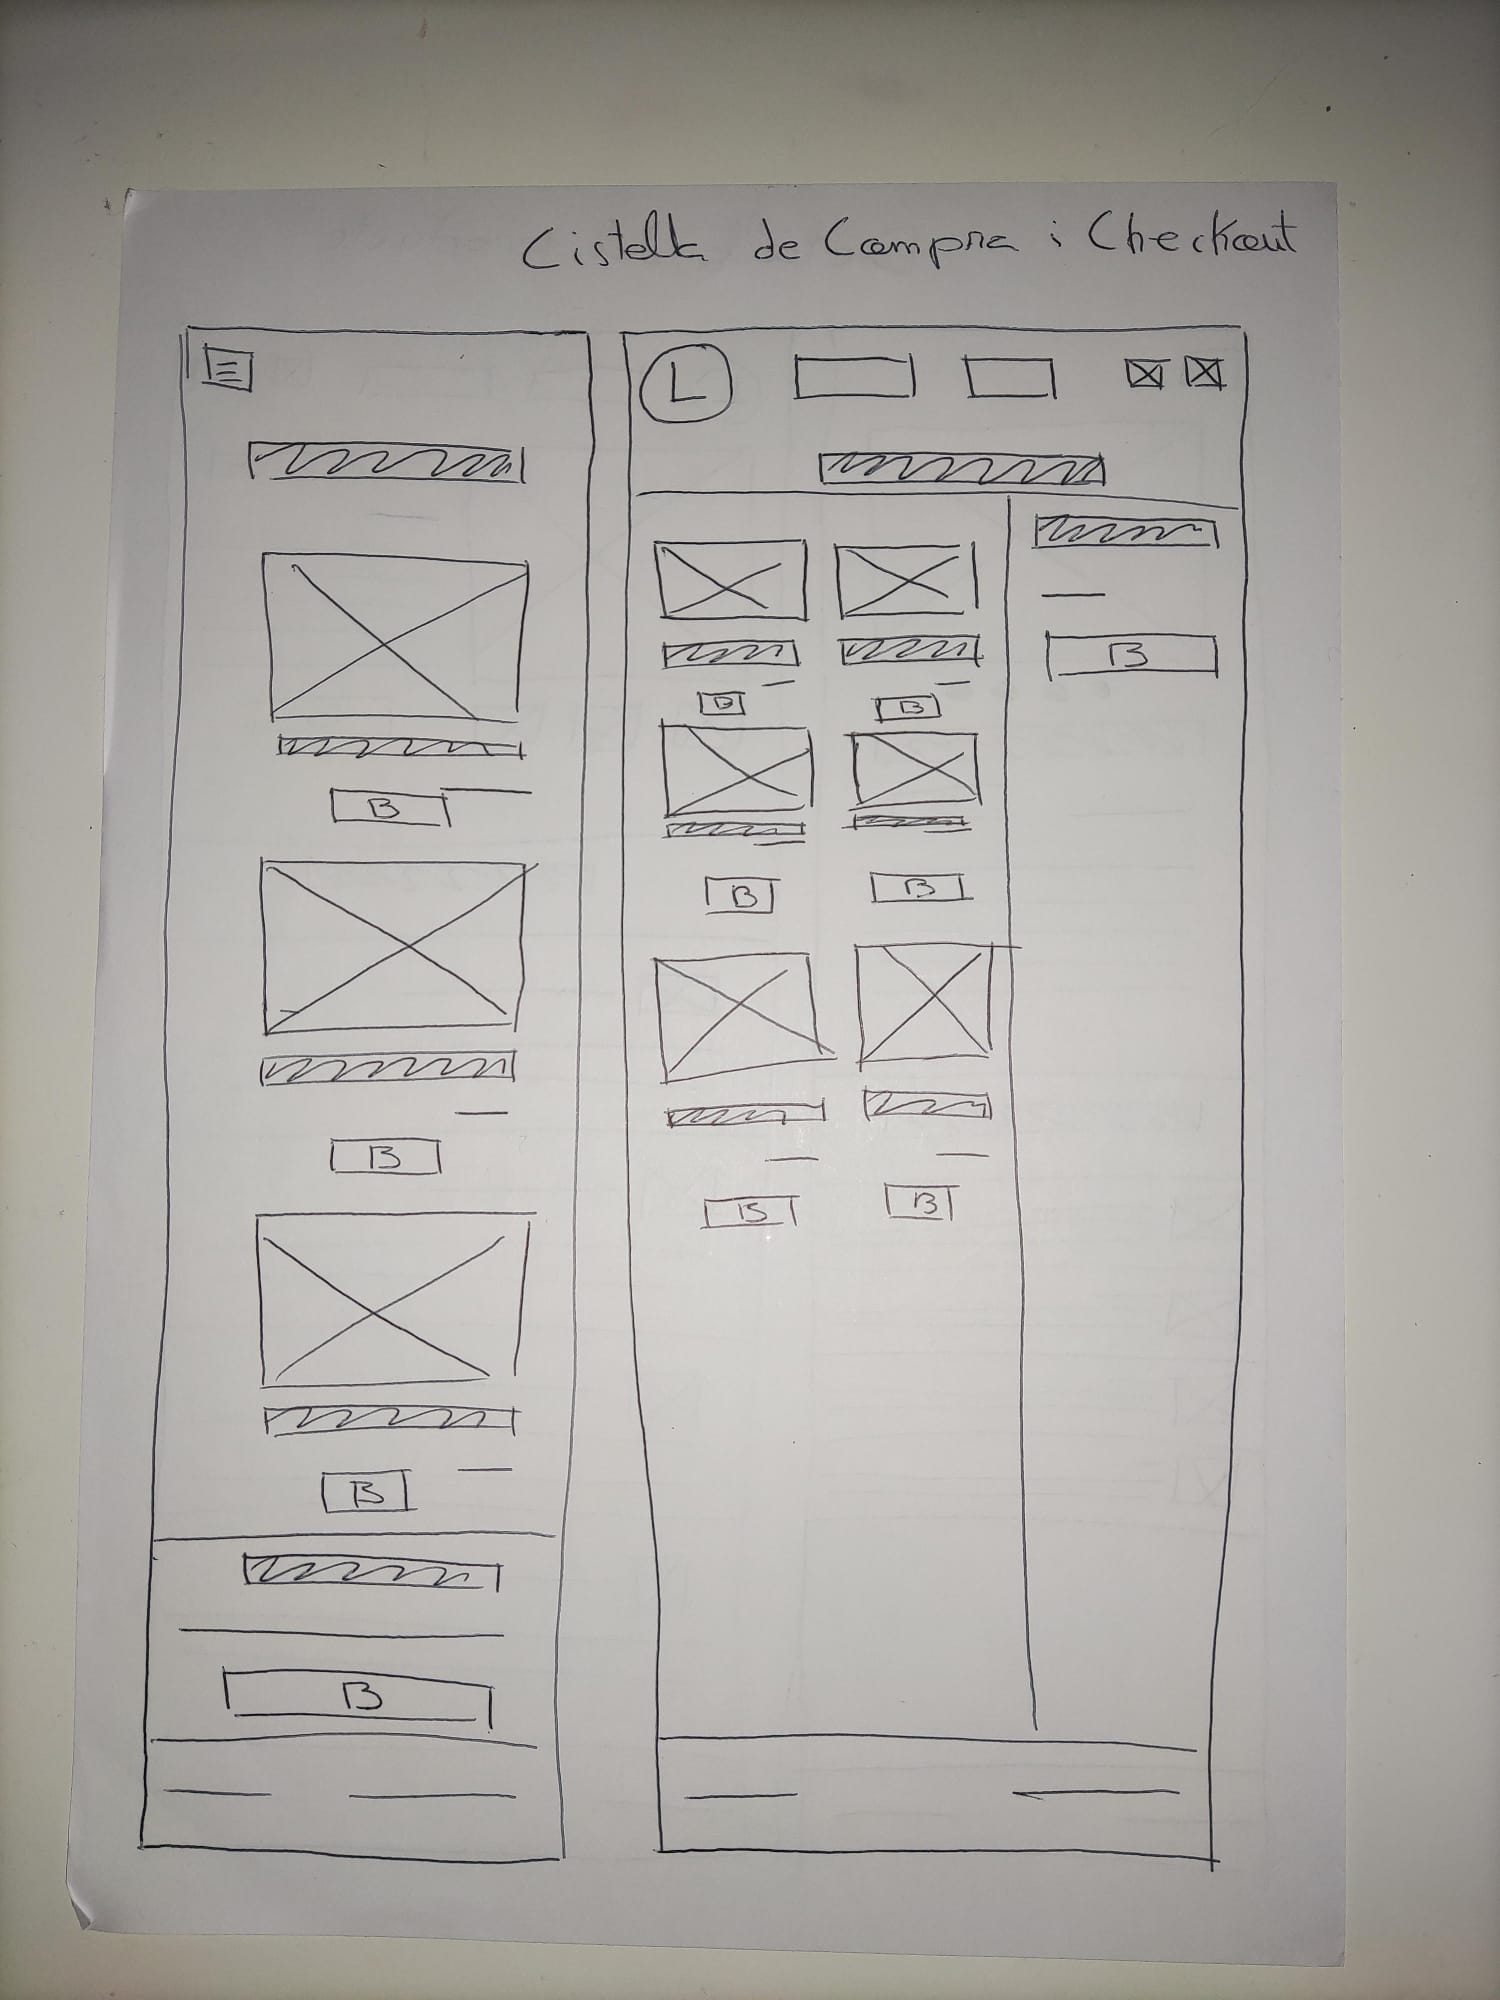 Cistella de Compra i Checkout
L
B
B
B
B
B
B
B
B
B
B
B